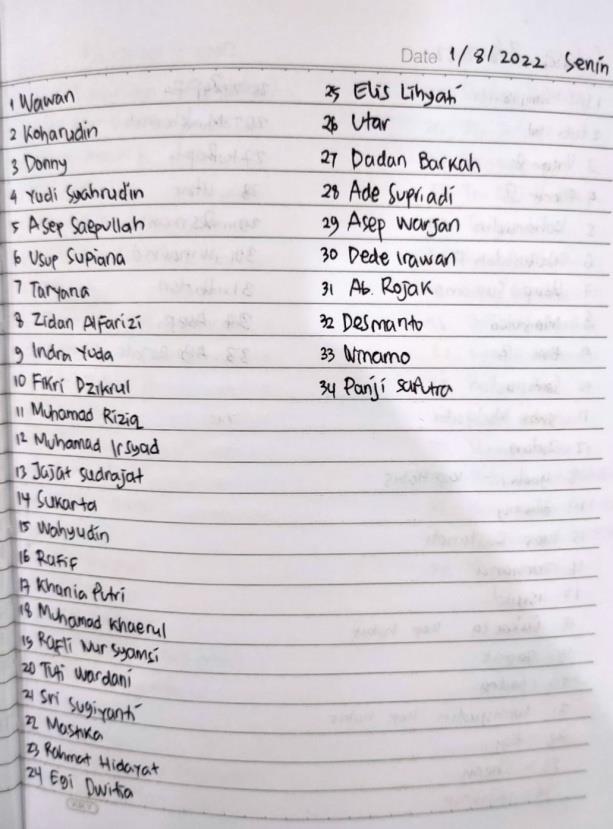 Date 1/8/2022 Senin
1 Wawan
2 Koharudin
3 Donny
4 Yudi Syahrudin
5 Asep Saepullah
6 Usup Supiana
7 Taryana
8 Zidan Alfarizi
9 Indra Yuda
10 Fikri Dzikrul
11 Muhamad Riziq
12 Muhamad Irsyad
13 Jajat Sudrajat
14 Sukarta
15 Wahyudin
16 Rafif
17 Khania Putri
18 Muhamad Khaerul
19 Rafli Nur Syamsi
20 Tuti Wardani
21 Sri Sugiyanti
22 Mastika
23 Rahmat Hidayat
24 Egi Dwitia
25 Elis Lihyati
26 Utar
27 Dadan Barkah
28 Ade Supriadi
29 Asep Warsan
30 Dede Irawan
31 Ab. Rojak
32 Desmanto
33 Winarno
34 Panji Saputra